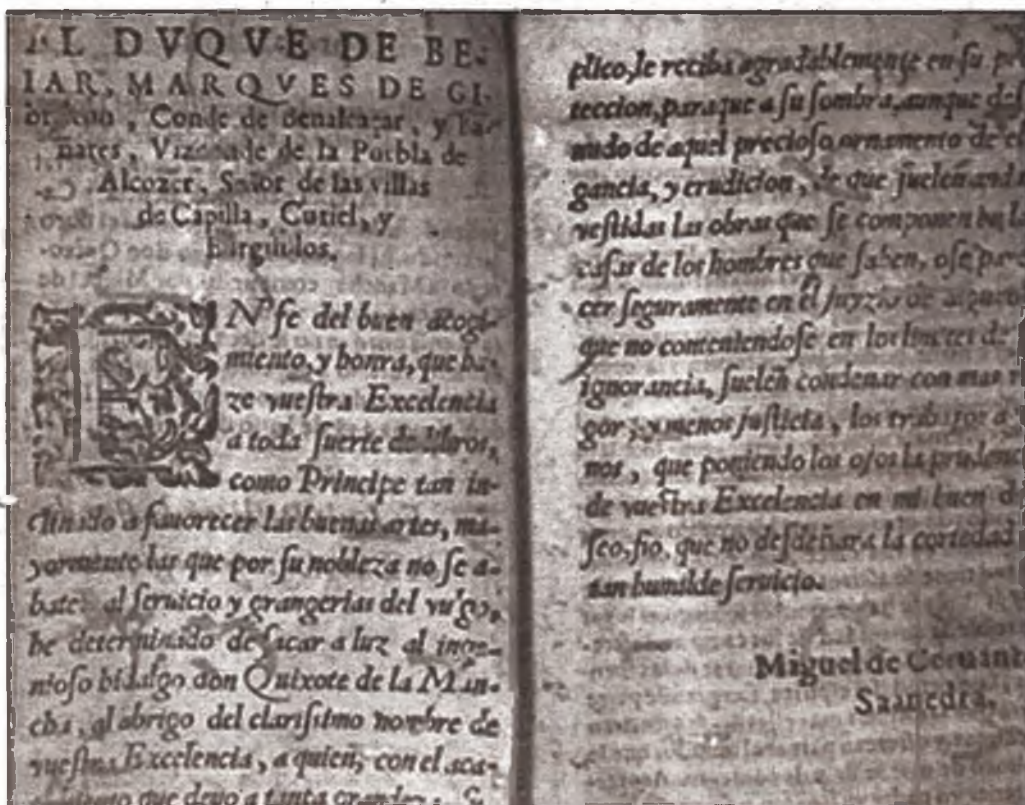 AL DVQVE DE BE-
IAR, MARQVES DE GI-
, Conde de Benalcaçar, y Ba-
ñares, Vizconde de la Puebla de
Alcozer, Señor de las villas
de Capilla, Curiel, y
Burguillos.
EN fe del buen acogi-
miento, y honra, que ha-
ze vueſtra Excelencia
a toda ſuerte de libros,
como Principe tan in-
clinado a fauorecer las buenas artes, ma-
yormente las que por ſu nobleza no ſe a-
baten al ſeruicio y grangerias del vulgo,
he determinado de ſacar a luz al inge-
nioſo hidalgo don Quixote de la Man-
cha, al abrigo del clariſsimo nombre de
vueſtra Excelencia, a quien, con el aca-
que deuo a tanta
plico, le reciba agradablemente en ſu pro
teccion, para que a ſu ſombra, aunque deſ
nudo de aquel precioſo ornamento de ele
gancia, y erudicion, de que ſuelen andar
veſtidas las obras que ſe componen en las
caſas de los hombres que ſaben, oſe pare
cer ſeguramente en el juyzio de algunos
que no conteniendoſe en los limites de ſu
ignorancia, ſuelen condenar con mas ri
gor, y menos juſticia, los trabajos age
nos, que poniendo los ojos la prudencia
de vueſtra Excelencia en mi buen de
ſeo, fio, que no deſdeñara la cortedad de
tan humilde ſeruicio.
Miguel de Ceruant
Saauedra.